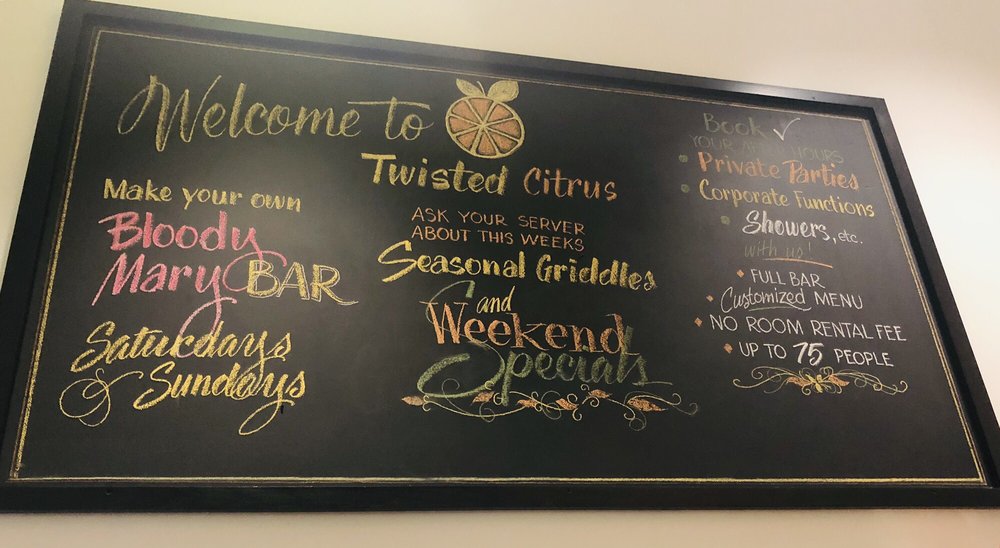 Welcome to
Twisted Citrus
Make your own
Bloody
Mary BAR
Saturdays
& Sundays
ASK YOUR SERVER
ABOUT THIS WEEKS
Seasonal Griddles
and
Weekend
Specials
Book ✓
YOUR HOURS
• Private Parties
• Corporate Functions
• Showers, etc.
with us!
• FULL BAR
• Customized MENU
• NO ROOM RENTAL FEE
• UP TO 75 PEOPLE